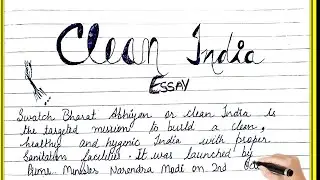 Clean India
ESSAY
Swatch Bharat Abhiyan or clean India is
the targeted mission to build a clean,
healthy and hygenic India with proper
Sanitation facilities. It was launched by
Prime Minister Narendra Modi on 2nd Oct